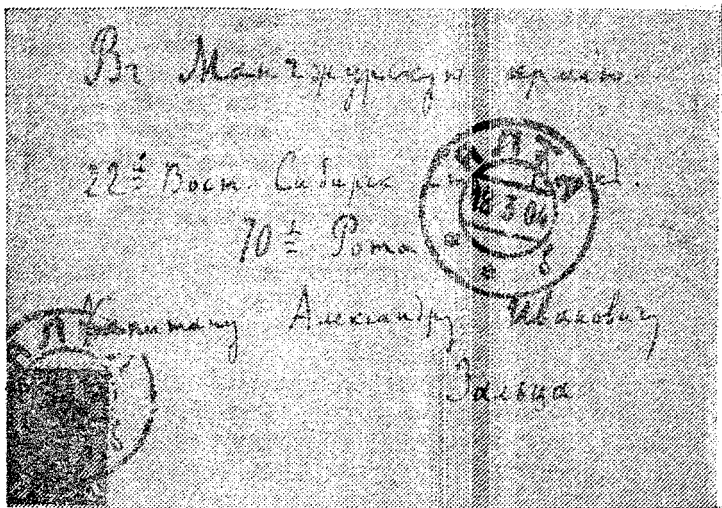 Въ Манчжурскую армію.
22й Вост. Сибирск
10й Рота
Капитану Александру Ивановичу
Зальца
18 3 04
б